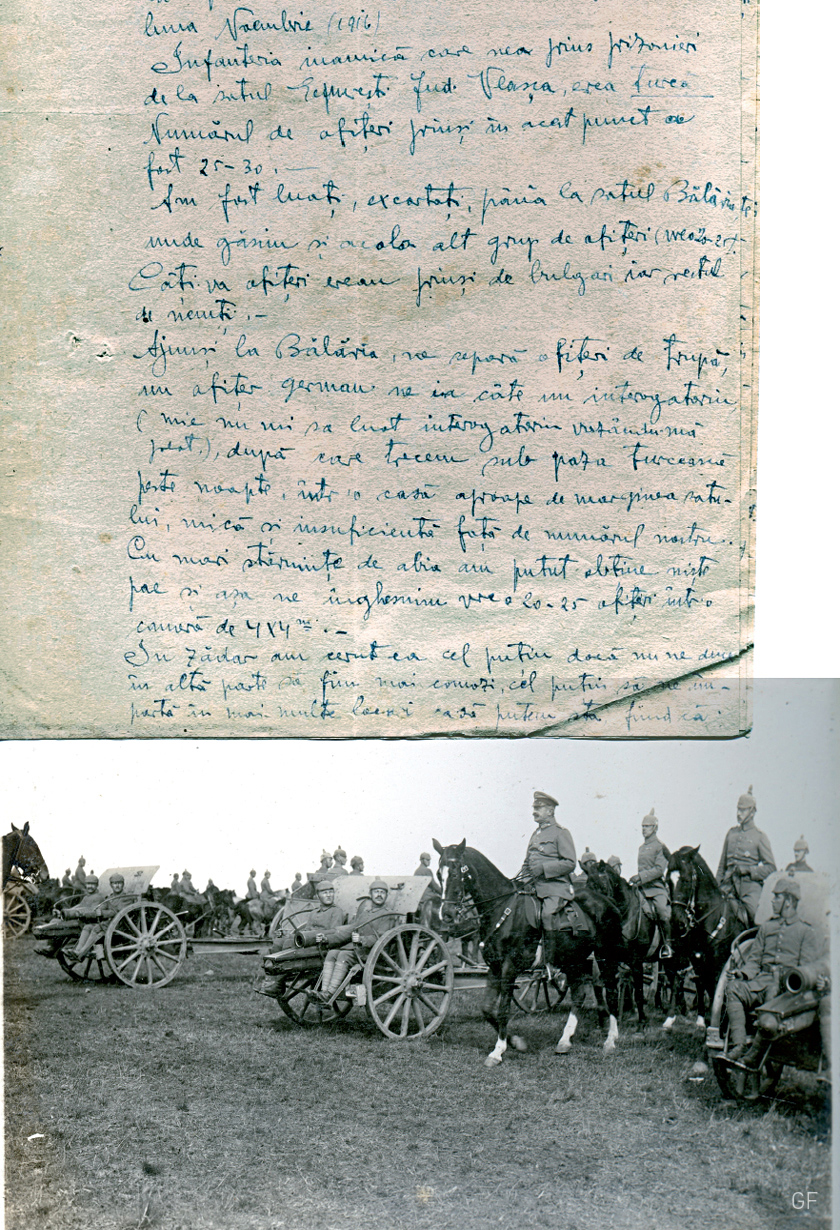 luna Noembrie (1916)
Infanteria inamică care nea prins prizonieri
de la satul Epurești Jud. Vlașca, erea turcă
Numărul de ofițeri prinși în acest punct a
fost 25-30. —
Am fost luați, excortați, până la satul Bălăria
unde găsim și acolo alt grup de ofițeri (vreo 20-25).
Câți-va ofițeri ereau prinși de bulgari iar restul
de nemți. —
Ajunși la Bălăria, ne separă ofițeri de trupă,
un ofițer german ne ia câte un interogatoriu
(mie nu mi sa luat interogatoriu văzându-mă
), după care trecem sub paza turcească
peste noapte, într'o casă aproape de marginea satu-
lui, mică și insuficientă față de numărul nostru.
Cu mari stăruințe de abia am putut obține niște
pae și așa ne înghesuim vreo 20-25 ofițeri într'o
cameră de 4x4 m. —
În zădar am cerut ca cel puțin dacă nu ne duce
în altă parte să fim mai comozi, cel puțin să ne îm-
partă în mai multe locuri ca să putem sta fiind că
GF